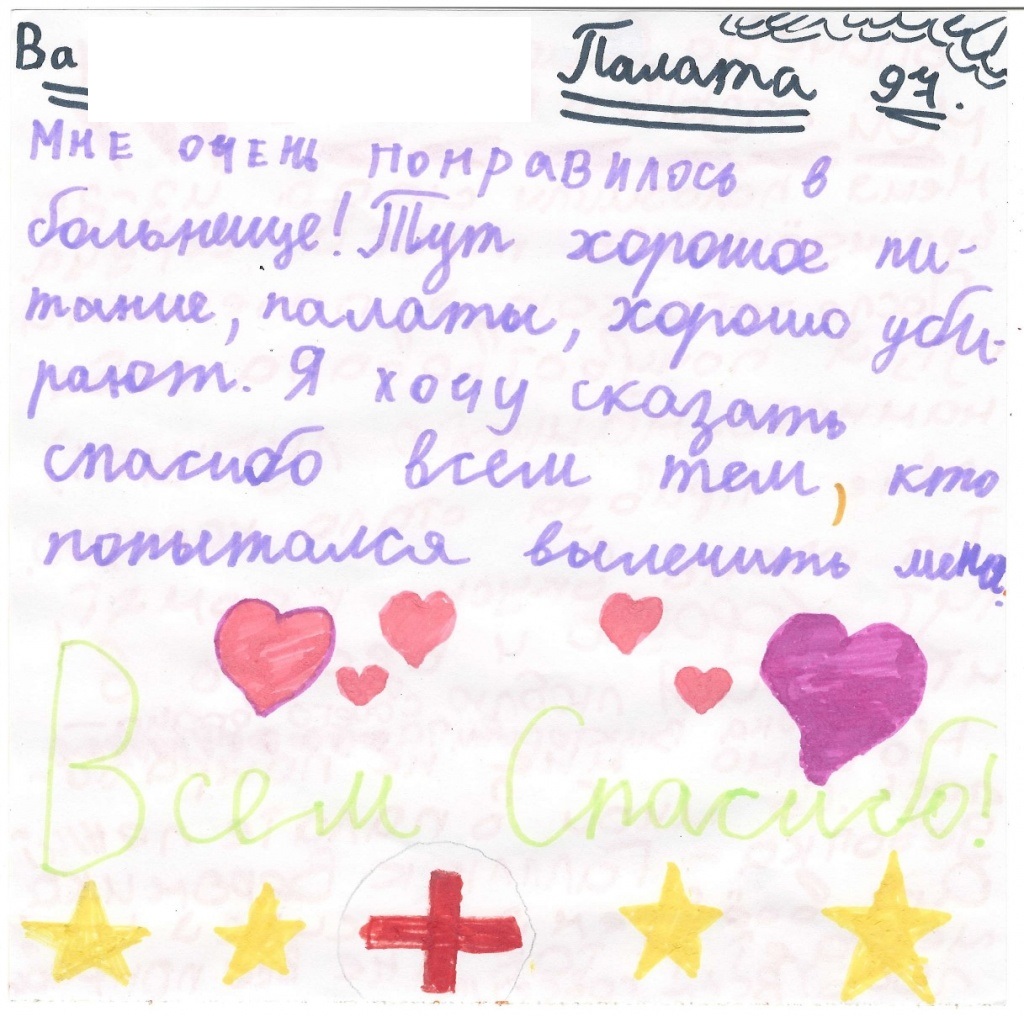 Ва Палата 97.
Мне очень понравилось в
больнице! Тут хорошое пи-
тание, палаты, хорошо уби-
рают. Я хочу сказать
спасибо всем тем, кто
попытался вылечить меня.
Всем Спасибо!